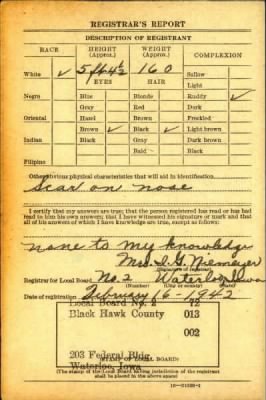 REGISTRAR'S REPORT
DESCRIPTION OF REGISTRANT
RACE HEIGHT (Approx.) WEIGHT (Approx.) COMPLEXION
White ✓ 5 ft 4½ 160 Sallow
EYES HAIR Light
Negro Blue Blonde Ruddy ✓
Gray Red Dark
Oriental Hazel Brown Freckled
Brown ✓ Black ✓ Light brown
Indian Black Gray Dark brown
Bald Black
Filipino
Other obvious physical characteristics that will aid in identification
Scar on nose
I certify that my answers are true; that the person registered has read or has had
read to him his own answers; that I have witnessed his signature or mark and that
all of his answers of which I have knowledge are true, except as follows:
none to my knowledge
Mrs. I. G. Niemeyer
(Signature of registrar)
Registrar for Local Board No. 2 Waterloo Iowa
(Number) (City or county) (State)
Date of registration February 16-1942
Local Board No. 2 12
Black Hawk County 013
002
203 Federal Bldg.
Waterloo, Iowa
(STAMP OF LOCAL BOARD)
(The stamp of the Local Board having jurisdiction of the registrant
shall be placed in the above space)